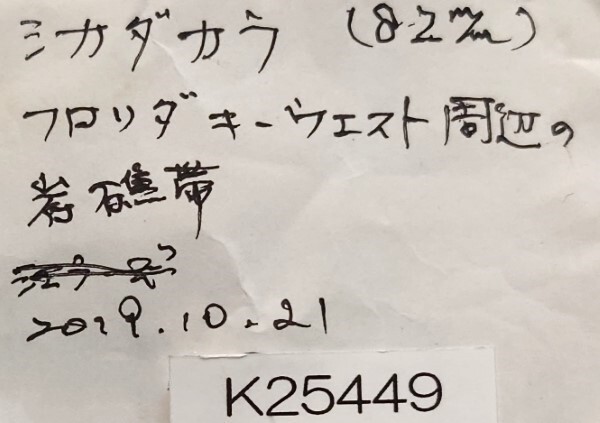 シカダカラ (82m/m)
フロリダキーウエスト周辺の
岩礁帯
2019.10.21
K25449